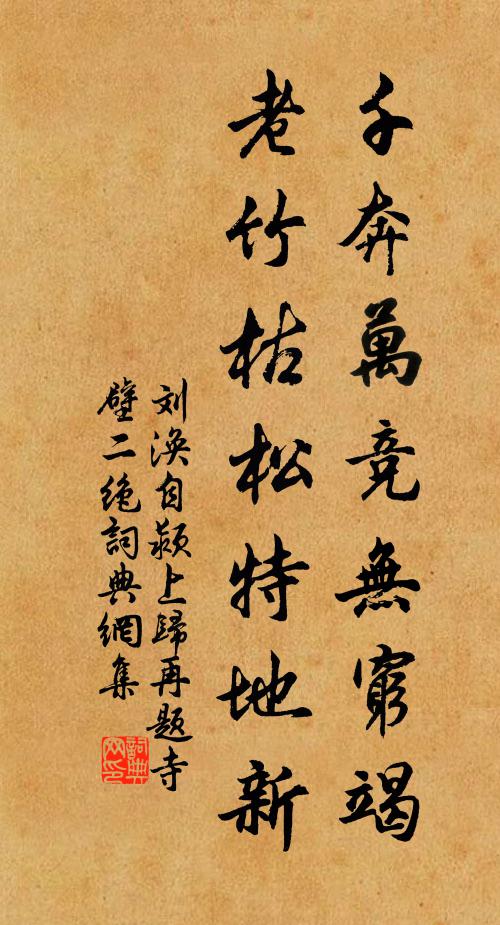 千奔萬競無窮竭
老竹枯松特地新
刘渙自颍上歸再題寺
壁二绝詞典網集
詞典网印